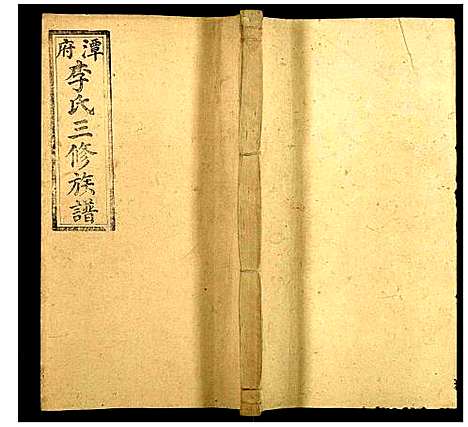 潭府
李氏三修族譜